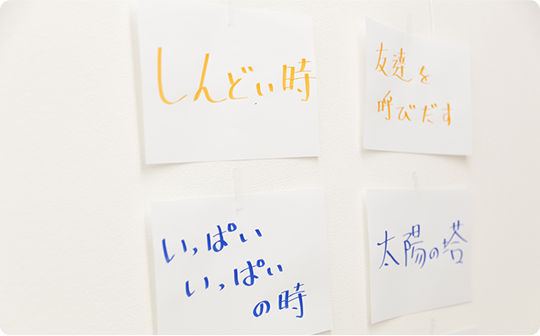 しんどい時
友達を
呼びだす
いっぱい
いっぱい
の時
太陽の塔